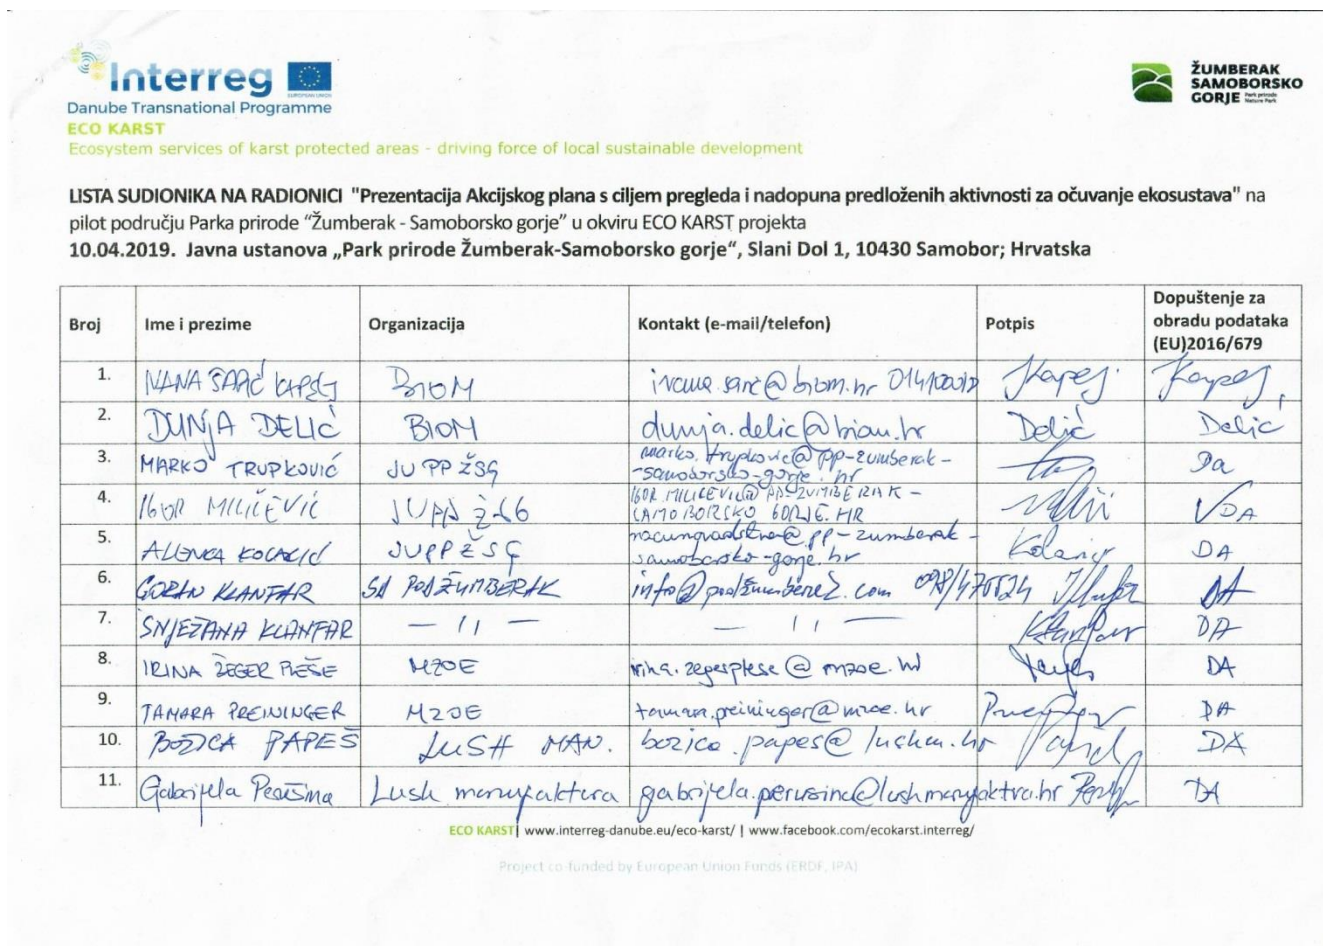 Interreg
EUROPEAN UNION
Danube Transnational Programme
ECO KARST
Ecosystem services of karst protected areas - driving force of local sustainable development
ŽUMBERAK
SAMOBORSKO
GORJE Park prirode
Nature Park
LISTA SUDIONIKA NA RADIONICI "Prezentacija Akcijskog plana s ciljem pregleda i nadopuna predloženih aktivnosti za očuvanje ekosustava" na
pilot području Parka prirode “Žumberak - Samoborsko gorje” u okviru ECO KARST projekta
10.04.2019. Javna ustanova „Park prirode Žumberak-Samoborsko gorje“, Slani Dol 1, 10430 Samobor; Hrvatska
Broj Ime i prezime Organizacija Kontakt (e-mail/telefon) Potpis Dopuštenje za
obradu podataka
(EU)2016/679
1. IVANA SARIĆ KAPELJ BIOM ivana.saric@biom.hr Kapelj Kapelj
2. DUNJA DELIĆ BIOM dunja.delic@biom.hr Delić Delić
3. MARKO TRUPKOVIĆ JU PP ŽSG marko.trupkovic@pp-zumberak-
-samoborsko-gorje.hr Da
4. IGOR MILIČEVIĆ JUPP ŽSG IGOR.MILICEVIC@PP-ZUMBERAK-
SAMOBORSKO GORJE.HR DA
5. ALENKA JUPPŽSG racunovodstvo@pp-zumberak-
samoborsko-gorje.hr DA
6. GORAN KLANFAR PODŽUMBERAK DA
7. SNJEŽANA KLANFAR — 11 — — 11 — Klanfar DA
8. IRINA ŽEGER PLEŠE MZOE irina.zegerplese@mzoe.hr DA
9. TAMARA PREININGER MZOE tamara.preininger@mzoe.hr DA
10. BOŽICA PAPEŠ LUSH MAN. bozica.papes@lushm.hr DA
11. Gabrijela Perušina Lush manufaktura gabrijela.perusina@lushmanufaktura.hr DA
ECO KARST| www.interreg-danube.eu/eco-karst/ | www.facebook.com/ecokarst.interreg/
Project co-funded by European Union Funds (ERDF, IPA)